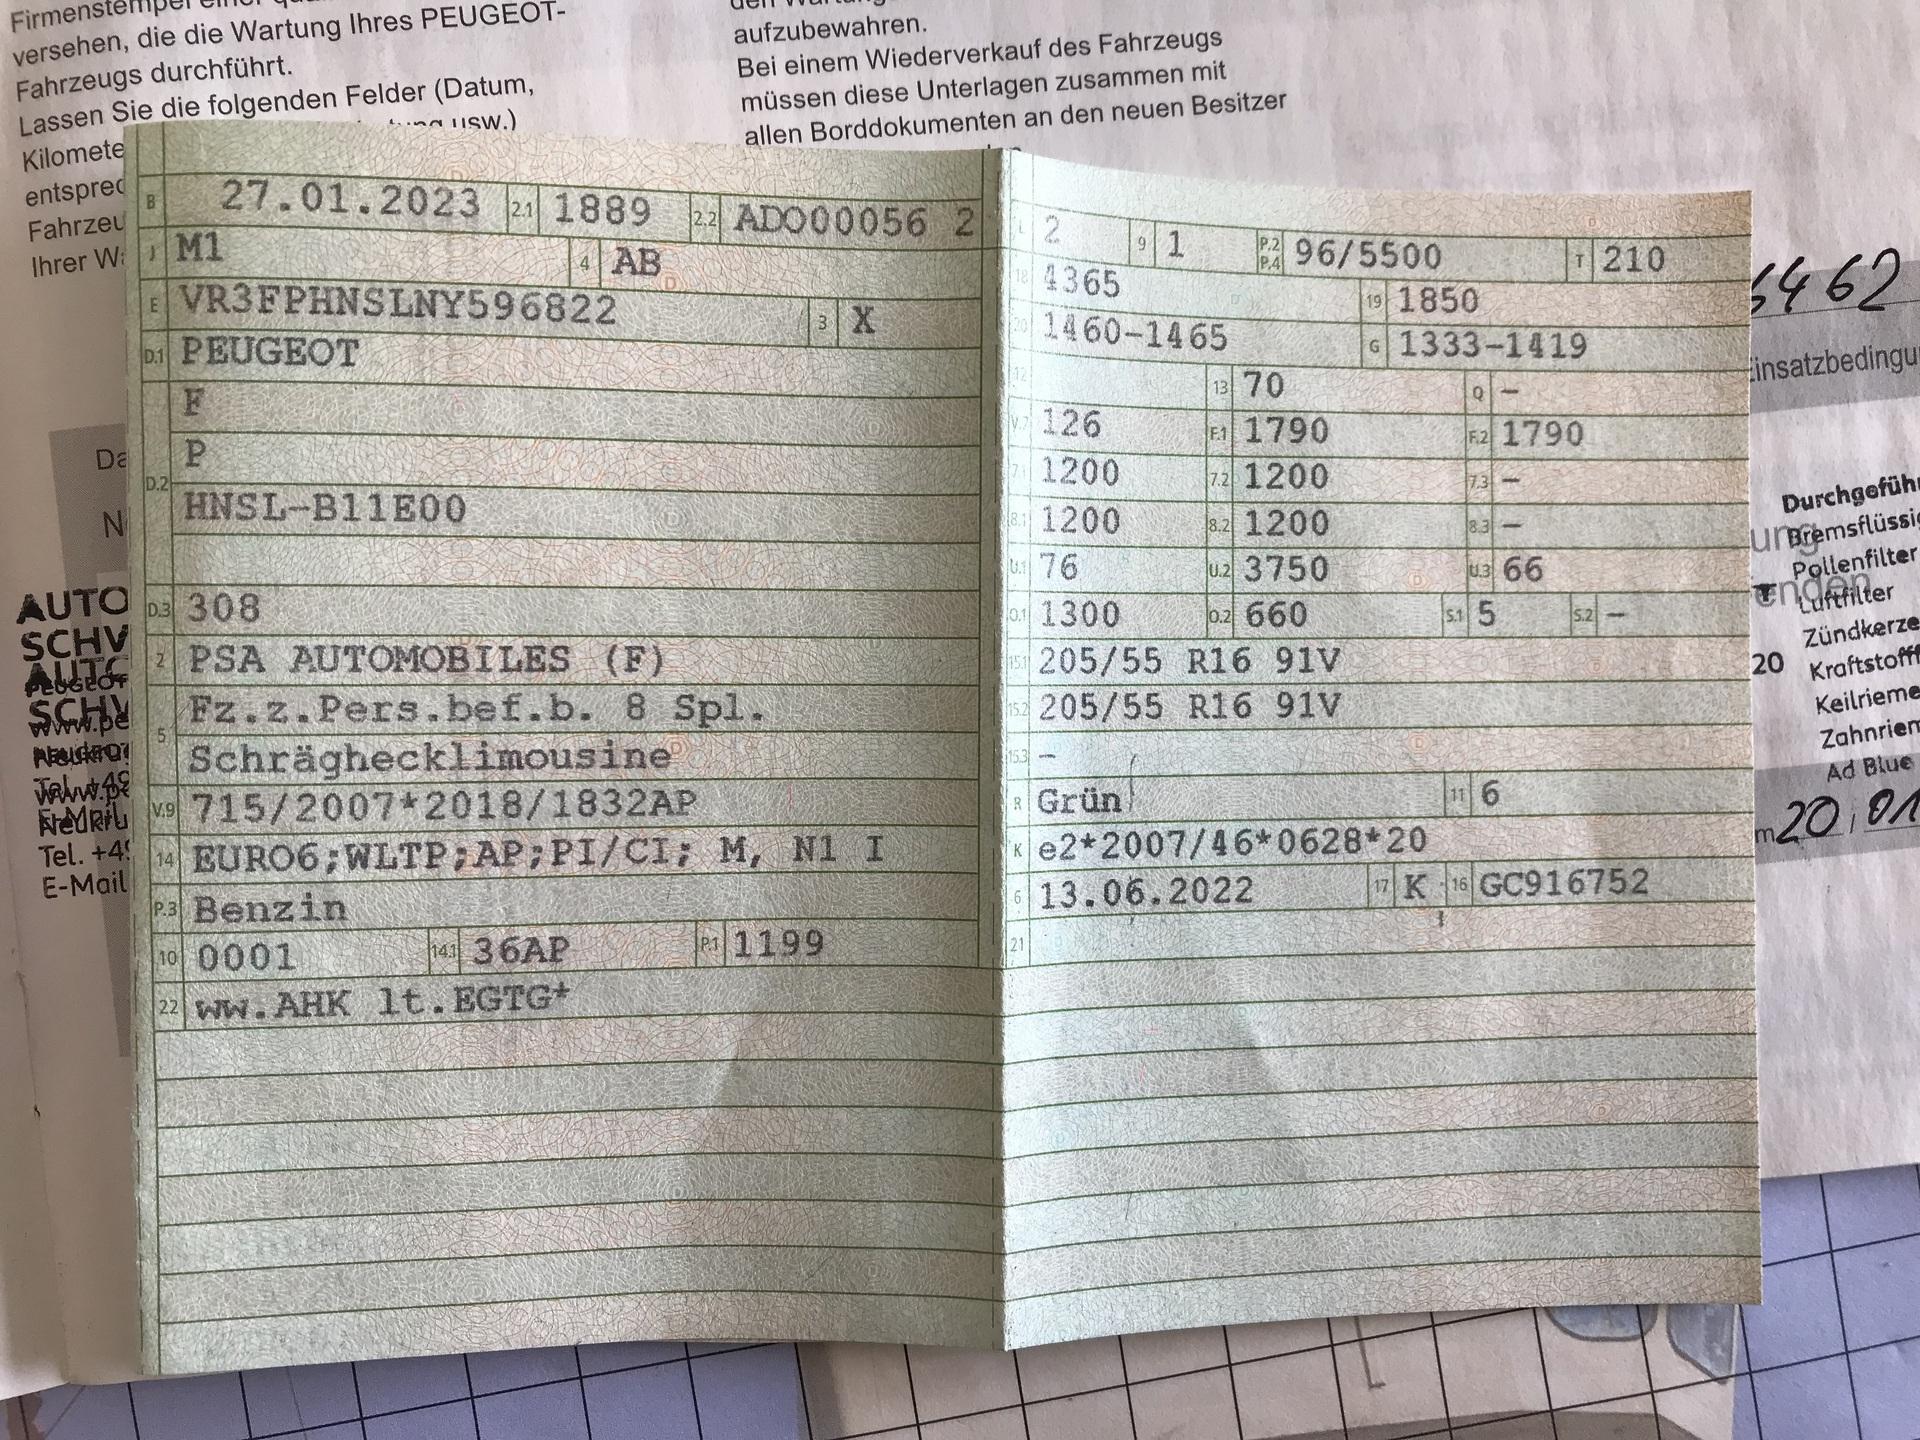 versehen, die die Wartung Ihres PEUGEOT-
Fahrzeugs durchführt.
Lassen Sie die folgenden Felder (Datum,
usw.)
aufzubewahren.
Bei einem Wiederverkauf des Fahrzeugs
müssen diese Unterlagen zusammen mit
allen Borddokumenten an den neuen Besitzer
B 27.01.2023 2.1 1889 2.2 ADO00056 2
J M1 4 AB
E VR3FPHNSLNY596822 3 X
D.1 PEUGEOT
F
P
D.2
HNSL-B11E00
D.3 308
2 PSA AUTOMOBILES (F)
Fz.z.Pers.bef.b. 8 Spl.
5
Schräghecklimousine
V.9 715/2007*2018/1832AP
14 EURO6;WLTP;AP;PI/CI; M, N1 I
P.3 Benzin
10 0001 14.1 36AP P.1 1199
22 ww.AHK lt.EGTG*
L 2 9 1 P.2 P.4 96/5500 T 210
18 4365 19 1850
20 1460-1465 G 1333-1419
12 13 70 Q -
V.7 126 F.1 1790 F.2 1790
7.1 1200 7.2 1200 7.3 -
8.1 1200 8.2 1200 8.3 -
U.1 76 U.2 3750 U.3 66
O.1 1300 O.2 660 S.1 5 S.2 -
15.1 205/55 R16 91V
15.2 205/55 R16 91V
15.3 -
R Grün 11 6
K e2*2007/46*0628*20
6 13.06.2022 17 K 16 GC916752
21
Pollenfilter
Luftfilter
20
Ad Blue
AUTO
Tel. +49
E-Mail